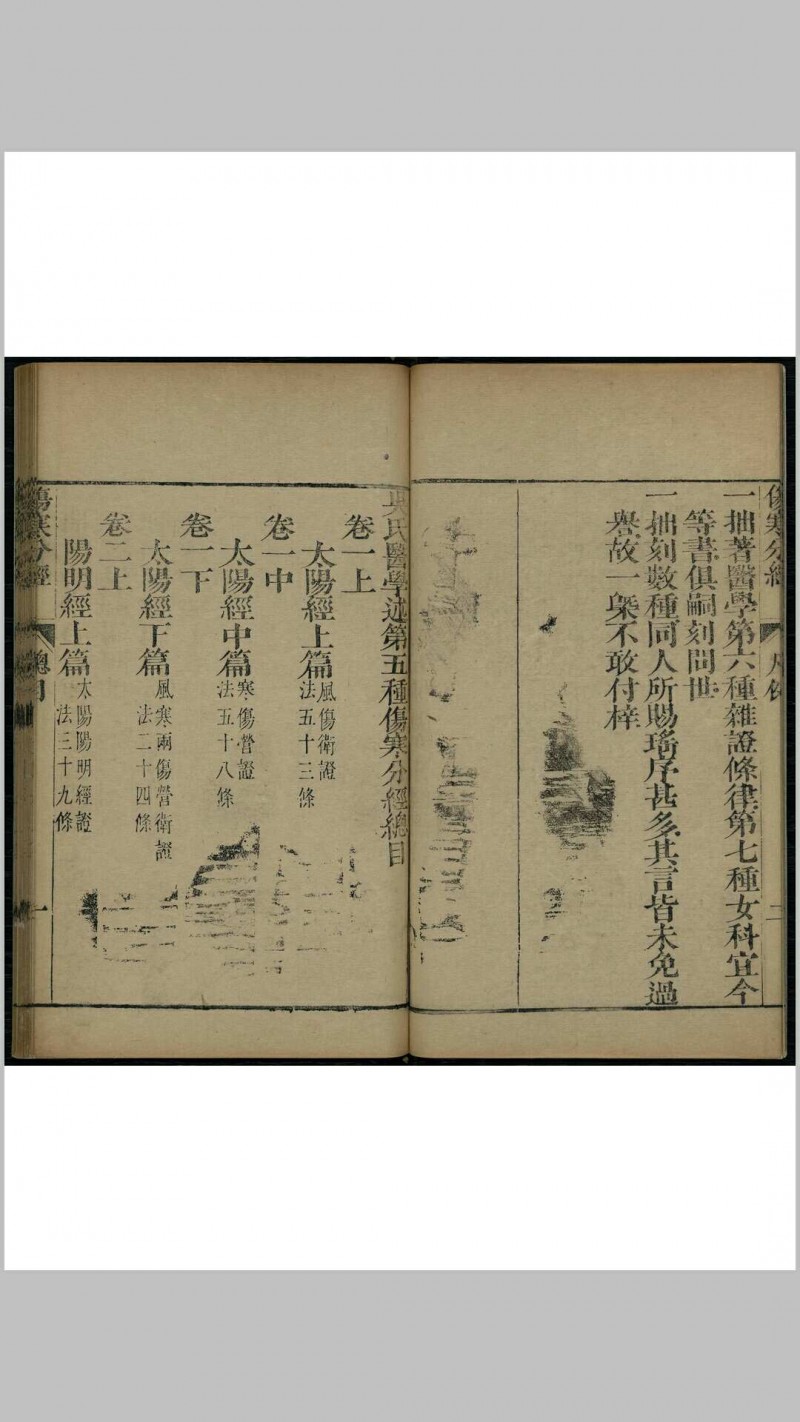 傷寒分經
凡例
二
一拙著醫學第六種雜證條律第七種女科宜今
等書俱嗣刻問世
一拙刻數種同人所賜瑤序甚多其言皆未免過
譽故一槩不敢付梓
吳氏醫學述第五種傷寒分經總目
卷一上
太陽經上篇風傷衛證
法五十三條
卷一中
太陽經中篇寒傷營證
法五十八條
卷一下
太陽經下篇風寒兩傷營衛證
法二十四條
卷二上
陽明經上篇太陽陽明經證
法三十九條
傷寒分經
總目
一